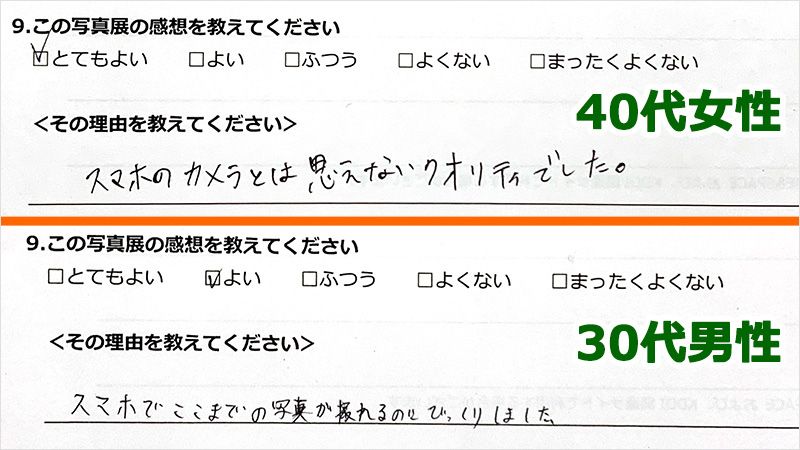 9.この写真展の感想を教えてください
☑とてもよい □よい □ふつう □よくない □まったくよくない
40代女性
＜その理由を教えてください＞
スマホのカメラとは思えないクオリティでした。
9.この写真展の感想を教えてください
□とてもよい ☑よい □ふつう □よくない □まったくよくない
30代男性
＜その理由を教えてください＞
スマホでここまでの写真が撮れるのにびっくりしました